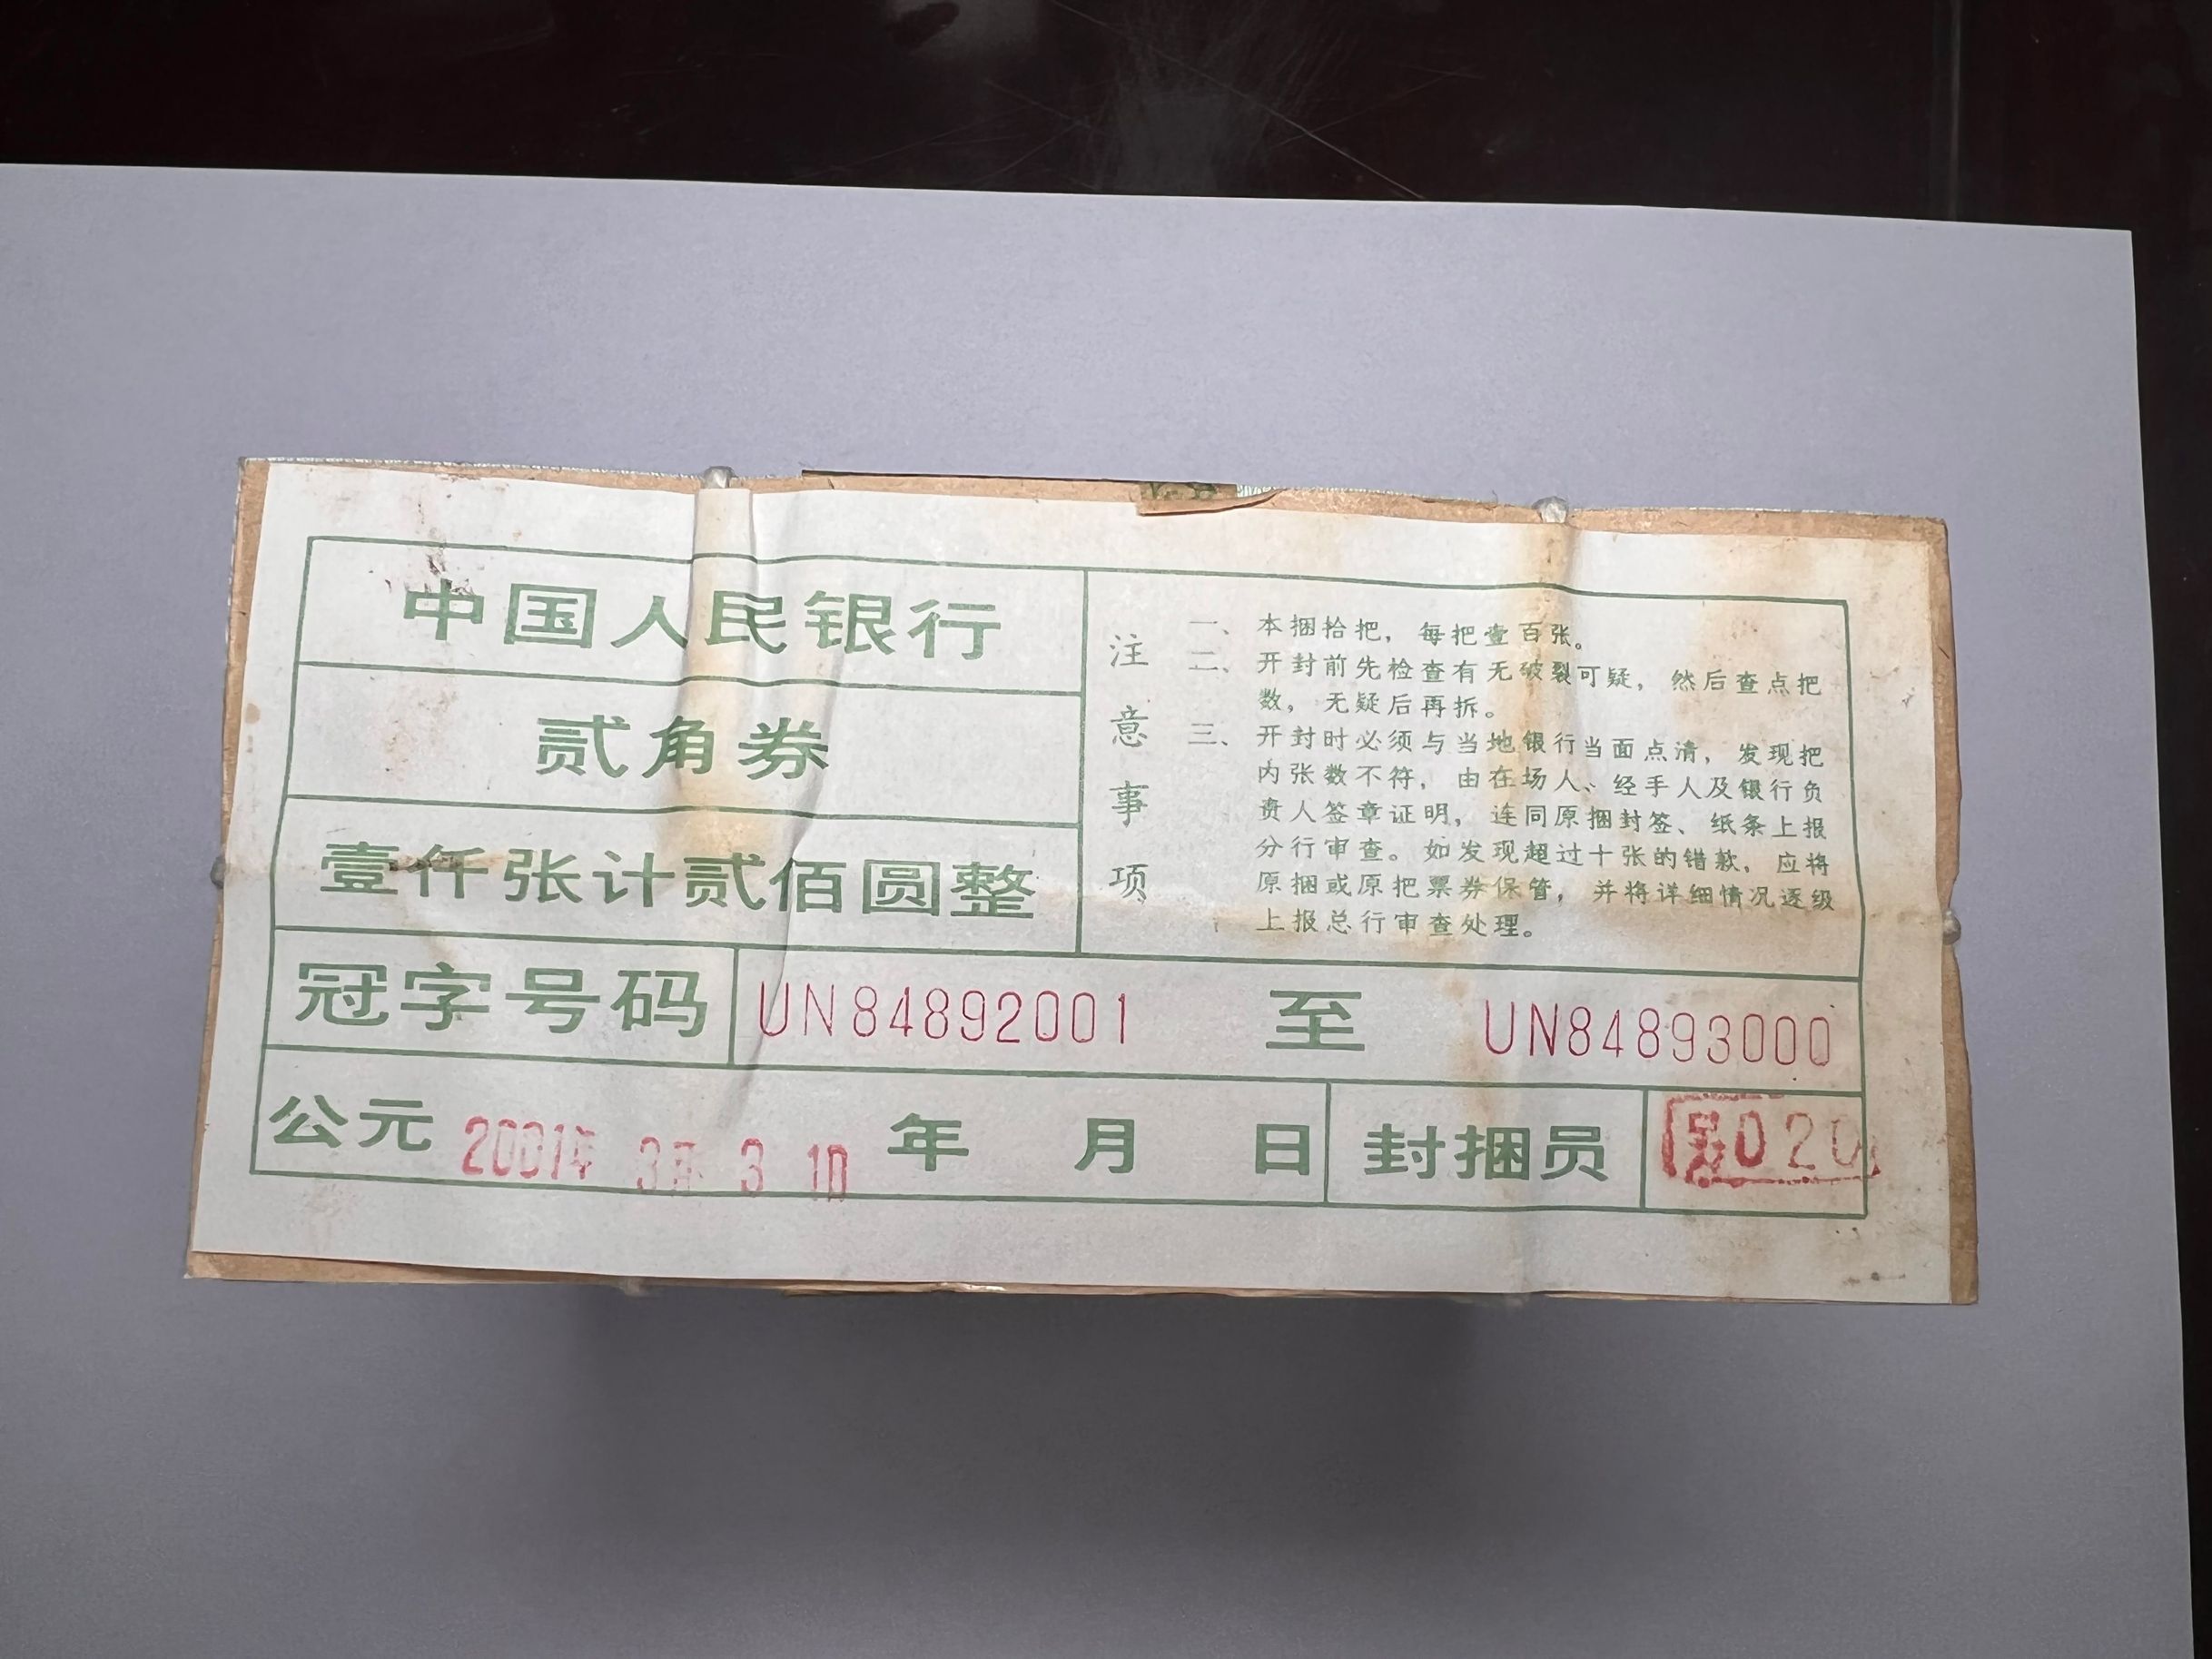 中国人民银行
贰角券
壹仟张计贰佰圆整
注意事项
一、本捆拾把，每把壹百张。
二、开封前先检查有无破裂可疑，然后查点把
数，无疑后再拆。
三、开封时必须与当地银行当面点清，发现把
内张数不符，由在场人、经手人及银行负
责人签章证明，连同原捆封签、纸条上报
分行审查。如发现超过十张的错款，应将
原捆或原把票券保管，并将详细情况逐级
上报总行审查处理。
冠字号码 UN84892001 至 UN84893000
公元 2001年 3月 3 年 月 日 封捆员 020